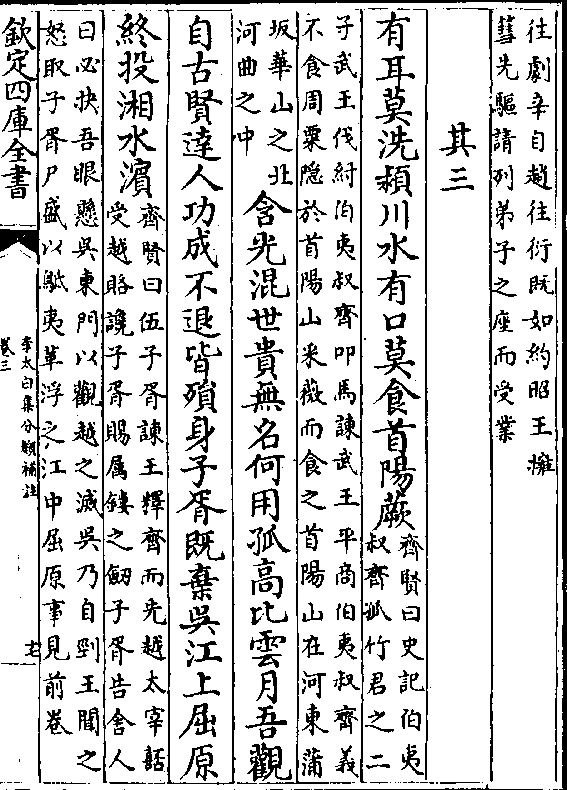 往劇辛自趙往衍既如約昭王擁
篲先驅請列弟子之座而受業
其三
有耳莫洗潁川水有口莫食首陽蕨
齊賢曰史記伯夷
叔齊孤竹君之二
子武王伐紂伯夷叔齊叩馬諫武王平商伯夷叔齊義
不食周粟隠於首陽山采薇而食之首陽山在河東蒲
坂華山之北
河曲之中
含光混世貴無名何用孤高比雲月吾觀
自古賢達人功成不退皆殞身子胥既棄吳江上屈原
終投湘水濱
齊賢曰伍子胥諫王釋齊而先越太宰嚭
受越賂讒子胥賜屬鏤之劒子胥告舍人
曰必抉吾眼懸吳東門以觀越之滅吳乃自剄王聞之
怒取子胥尸盛以鴟夷革浮之江中屈原事見前卷
欽定四庫全書
李太白集分類補註
卷三